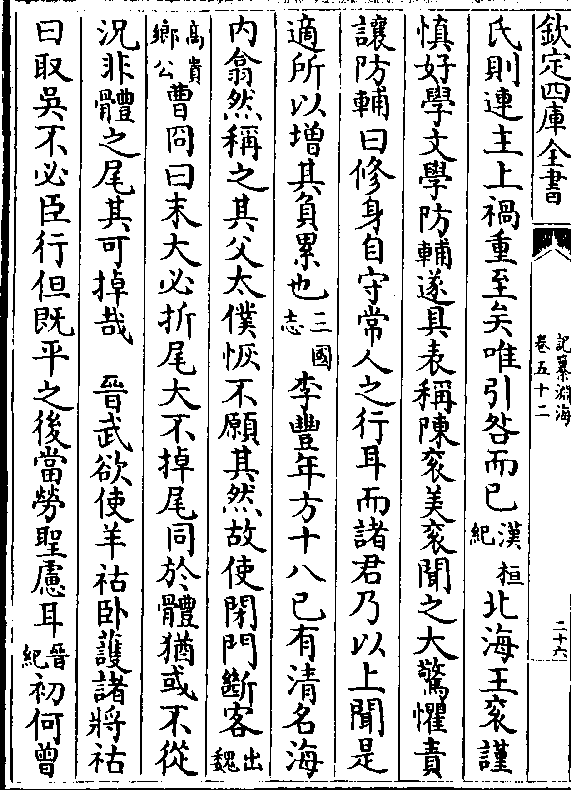 欽定四庫全書
記纂淵海
卷五十二
二十六
氏則連主上禍重至矣唯引咎而已漢桓紀北海王衮謹
慎好學文學防輔遂具表稱陳衮美衮聞之大驚懼責
讓防輔曰修身自守常人之行耳而諸君乃以上聞是
適所以增其負累也三國志李豐年方十八已有清名海
内翕然稱之其父太僕恢不願其然故使閉門斷客出魏
高貴鄉公曹冏曰末大必折尾大不掉尾同於體猶或不從
況非體之尾其可掉哉　晉武欲使羊祜卧護諸將祜
曰取吳不必臣行但既平之後當勞聖慮耳晉紀初何曾